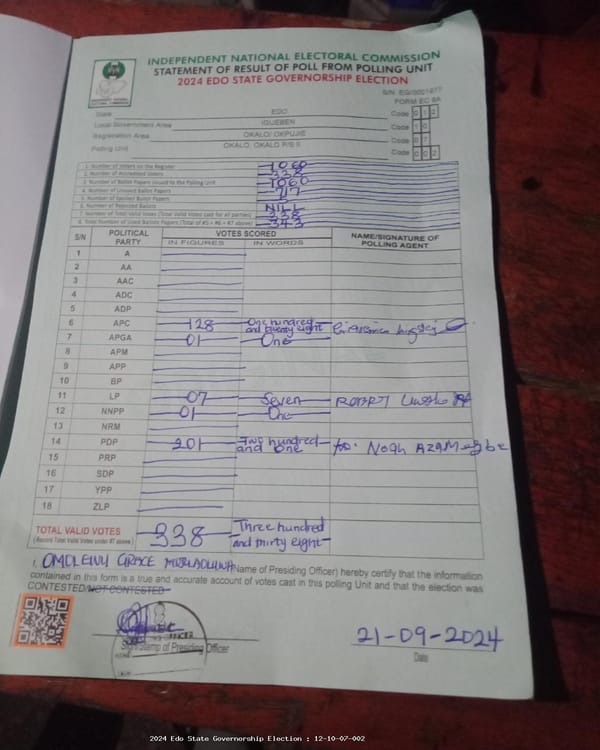 INDEPENDENT NATIONAL ELECTORAL COMMISSION
STATEMENT OF RESULT OF POLL FROM POLLING UNIT
2024 EDO STATE GOVERNORSHIP ELECTION
FORM EC 8A
State EDO Code 0 1 2
Local Government Area IGUEBEN Code 1 0
Registration Area OKALO/ OKPUJIE Code 0 7
Polling Unit OKALO, OKALO P/S II Code 0 0 2
1. Number of Voters on the Register 1060
2. Number of Accredited Voters 338
3. Number of Ballot Papers Issued to the Polling Unit 1060
4. Number of Unused Ballot Papers 717
5. Number of Spoiled Ballot Papers
6. Number of Rejected Ballots NILL
7. Number of Total Valid Votes (Total Valid Votes cast for all parties) 338
8. Total Number of Used Ballots Papers (Total of #5 + #6 + #7 above) 343
S/N POLITICAL PARTY VOTES SCORED NAME/SIGNATURE OF POLLING AGENT
IN FIGURES IN WORDS
1 A
2 AA
3 AAC
4 ADC
5 ADP
6 APC 128 One hundred and twenty eight
7 APGA 01 One
8 APM
9 APP
10 BP
11 LP 07 Seven
12 NNPP 01 One
13 NRM
14 PDP 201 Two hundred and One Noah
15 PRP
16 SDP
17 YPP
18 ZLP
TOTAL VALID VOTES 338 Three hundred and thirty eight
(Record Total Valid Votes under #7 above)
I, GRACE (Name of Presiding Officer) hereby certify that the information
contained in this form is a true and accurate account of votes cast in this polling Unit and that the election was
CONTESTED/NOT CONTESTED
Sign/Stamp of Presiding Officer
21-09-2024
Date
2024 Edo State Governorship Election : 12-10-07-002